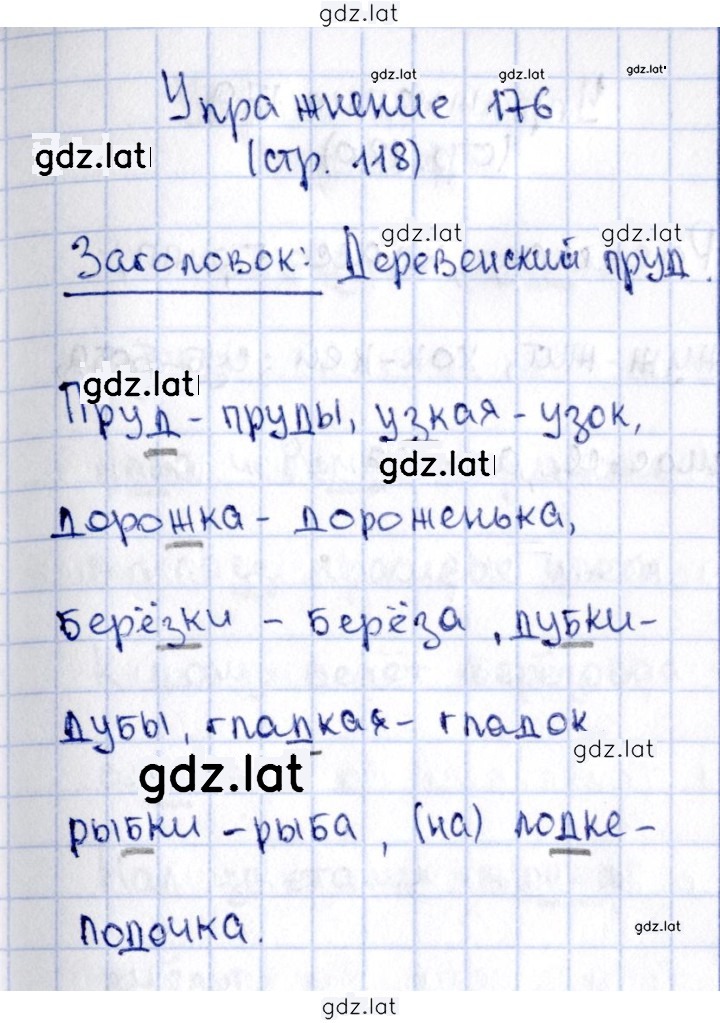 gdz.lat
gdz.lat gdz.lat gdz.lat
Упражнение 176
gdz.lat
(стр. 118)
gdz.lat gdz.lat
Заголовок: Деревенский пруд.
gdz.lat
Пруд - пруды, узкая - узок,
gdz.lat
дорожка - дороженька,
берёзки - берёза, дубки-
дубы, гладкая - гладок
gdz.lat
gdz.lat
рыбки - рыба, (на) лодке -
лодочка.
gdz.lat
gdz.lat